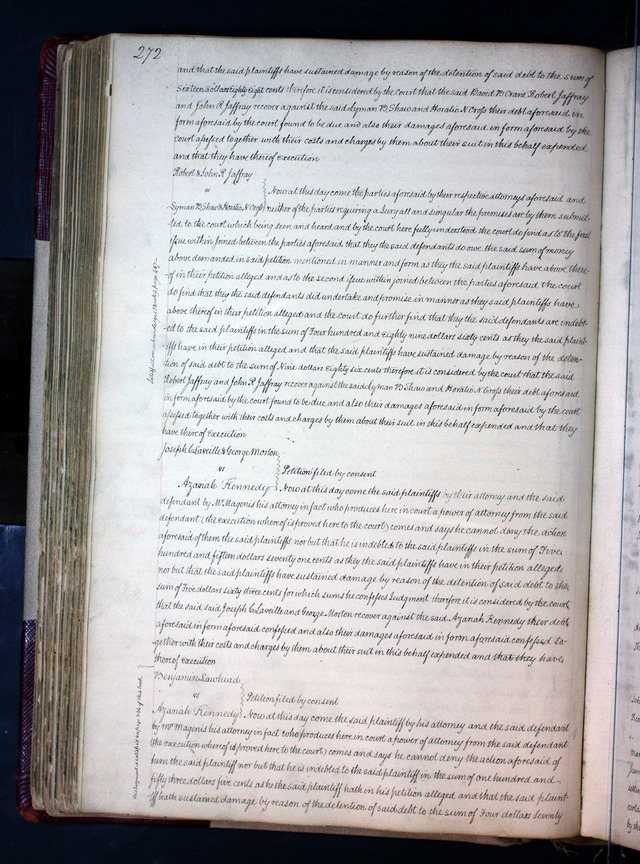 272
and that the said plaintiffs have sustained damage by reason of the detention of said debt to the sum of
Sixteen dollars eighty eight cents therefore it is considered by the court that the said David B Crane Robert Jaffray
and John R Jaffray recover against the said Lyman B Shaw and Horatio N Cross their debt aforesaid in
form aforesaid by the court found to be due and also their damages aforesaid in form aforesaid by the
court assessed together with their costs and charges by them about their suit in this behalf expended
and that they have thereof execution
Robert & John R Jaffray
vs
Lyman B Shaw & Horatio N Cross
Now at this day come the parties aforesaid by their respective attorneys aforesaid and
neither of the parties requiring a Jury all and singular the premises are by them submit-
ted to the court which being seen and heard and by the court here fully understood the court do find as to the first
issue within joined between the parties aforesaid that they the said defendants do owe the said sum of money
above demanded in said petition mentioned in manner and form as they the said plaintiffs have above there-
of in their petition alleged and as to the second issue within joined between the parties aforesaid the court
do find that they the said defendants did undertake and promise in manner as they said plaintiffs have
above thereof in their petition alleged and the court do further find that they the said defendants are indebt-
ed to the said plaintiffs in the sum of Four hundred and eighty nine dollars sixty cents as they the said plaint-
iffs have in their petition alleged and that the said plaintiffs have sustained damage by reason of the deten-
tion of said debt to the sum of Nine dollars Eighty six cents therefore it is considered by the court that the said
Robert Jaffray and John R Jaffray recover against the said Lyman B Shaw and Horatio N Cross their debt aforesaid
in form aforesaid by the court found to be due and also their damages aforesaid in form aforesaid by the court
assessed together with their costs and charges by them about their suit in this behalf expended and that they
have thereof execution
Joseph C Laveille & George Morton
vs
Azariah Kennedy
Petition filed by consent
Now at this day come the said plaintiffs by their attorney and the said
defendant by Mr Magenis his attorney in fact who produces here in court a power of attorney from the said
defendant (the execution whereof is proved here to the court) comes and says he cannot deny the action
aforesaid of them the said plaintiffs nor but that he is indebted to the said plaintiffs in the sum of Five
hundred and fifteen dollars seventy one cents as they the said plaintiffs have in their petition alleged
nor but that the said plaintiffs have sustained damage by reason of the detention of said debt to the
sum of Five dollars sixty three cents for which sums he confesses Judgment therefore it is considered by the court
that the said said Joseph C Laveille and George Morton recover against the said Azariah Kennedy their debt
aforesaid in form aforesaid confessed and also their damages aforesaid in form aforesaid confessed to-
gether with their costs and charges by them about their suit in this behalf expended and that they have
thereof execution
Benjamin Lawhead
vs
Azariah Kennedy
Petition filed by consent
Now at this day come the said plaintiff by his attorney and the said defendant
by Mr Magenis his attorney in fact who produces here in court a power of attorney from the said defendant
(the execution whereof is proved here to the court) comes and says he cannot deny the action aforesaid of
him the said plaintiff nor but that he is indebted to the said plaintiff in the sum of one hundred and
fifty three dollars five cents as he the said plaintiff hath in his petition alleged and that the said plaint-
iff hath sustained damage by reason of the detention of said debt to the sum of Four dollars Seventy